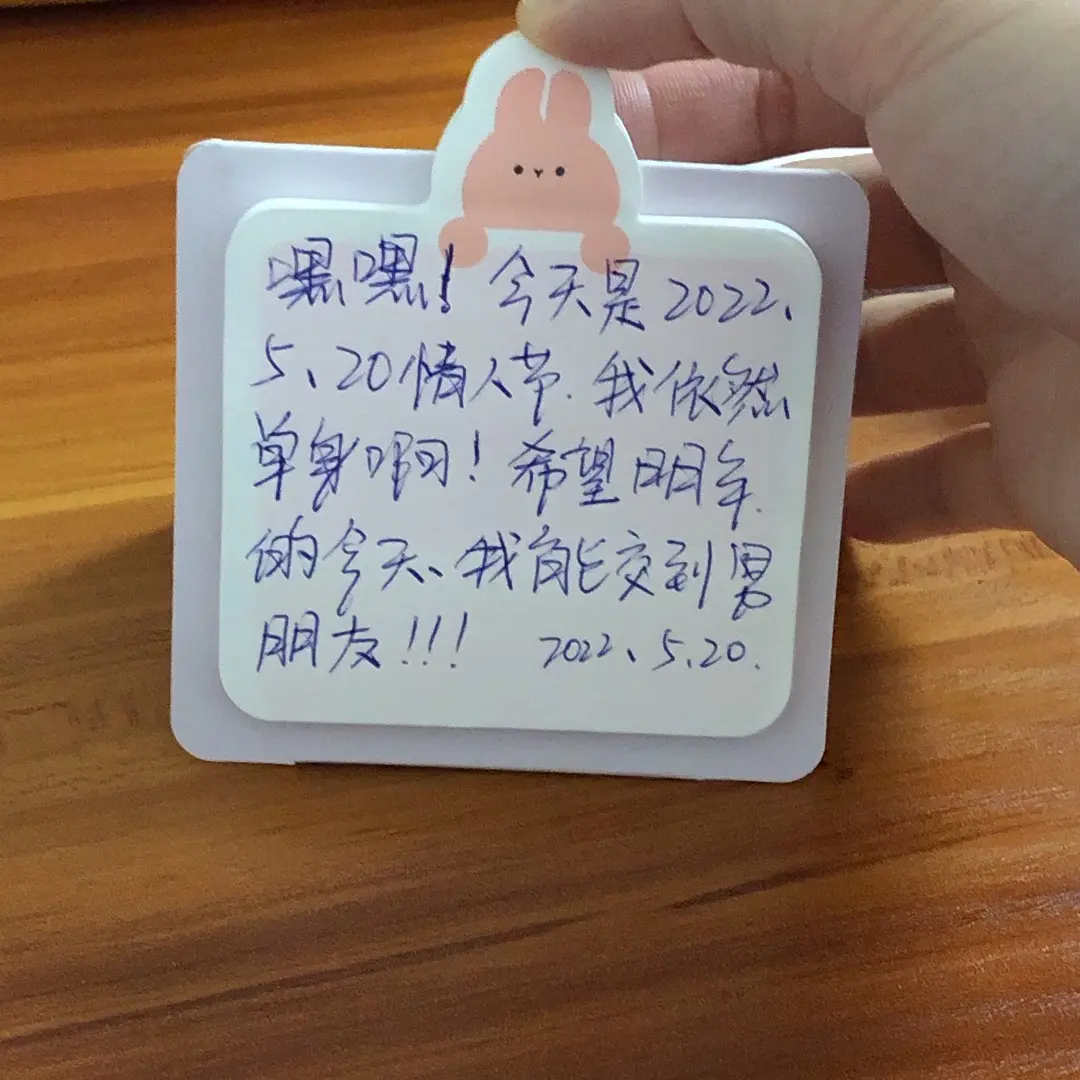 嘿嘿！今天是2022、
5、20情人节.我依然
单身啊！希望明年.
的今天、我能交到男
朋友！！！ 2022、5.20.